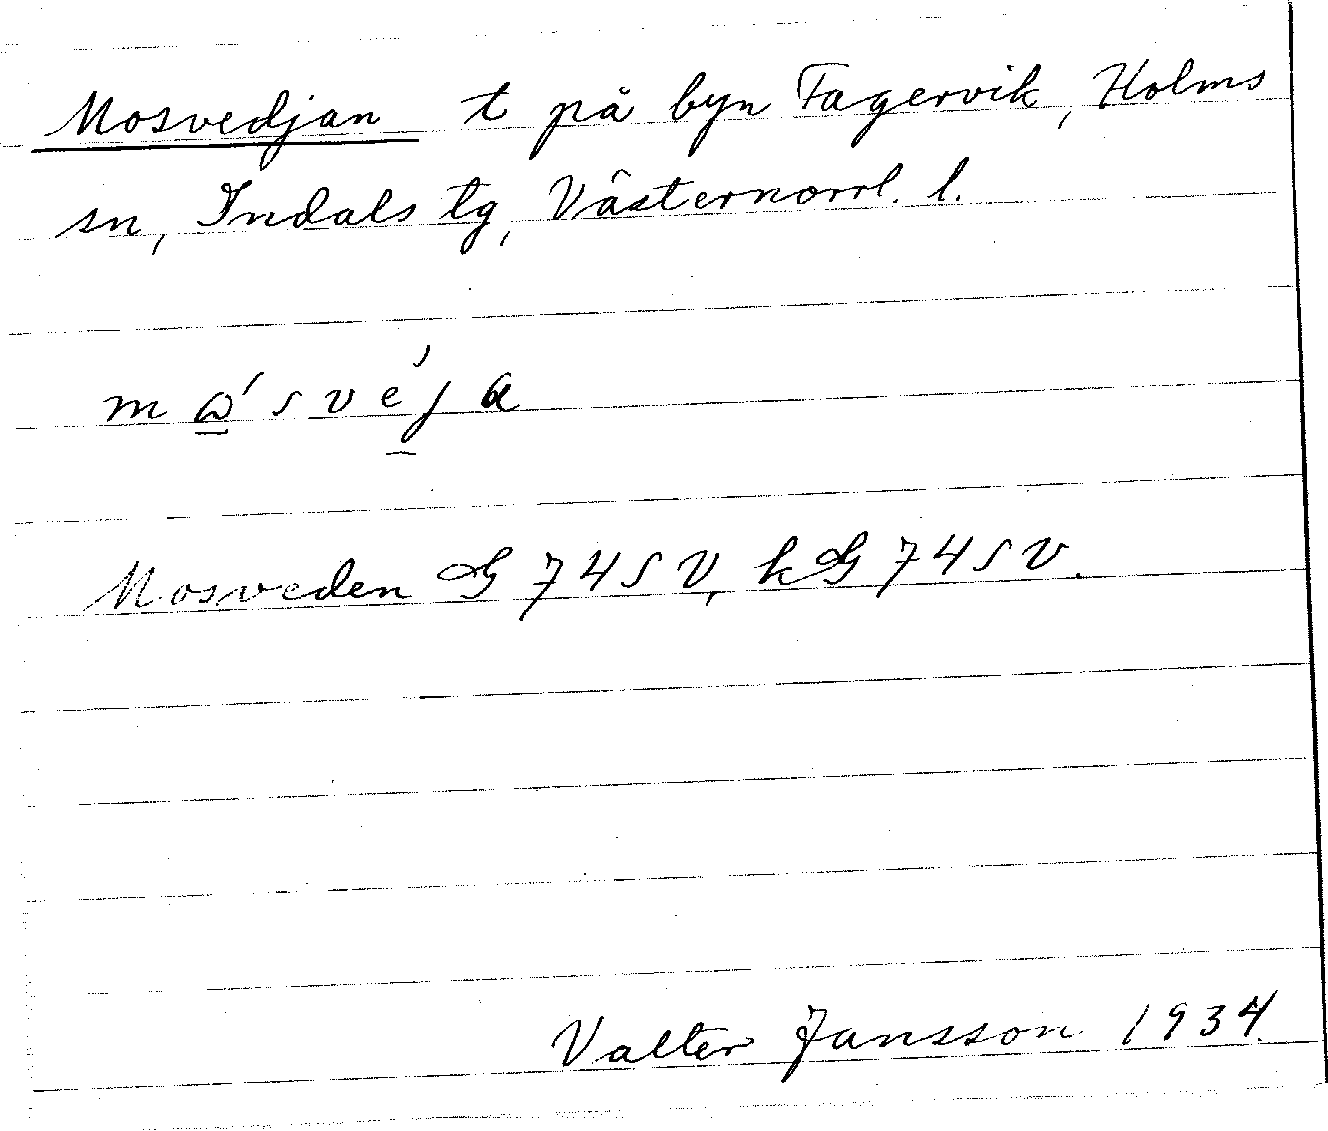 Mosvedjan t på byn Fagervik, Holms
sn, Indals tg, Västernorrl. l.
Mosveden G 74 SV, kG 74 SV.
Valter Jansson 1934.